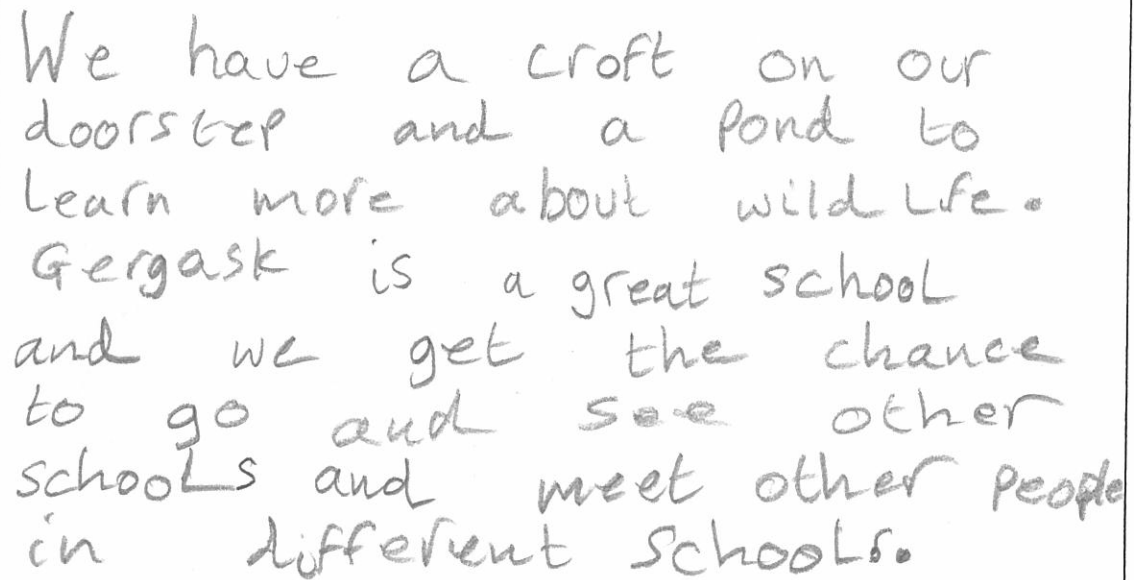 We have a croft on our
doorstep and a pond to
learn more about wild life.
Gergask is a great school
and we get the chance
to go and see other
schools and meet other people
in different schools.